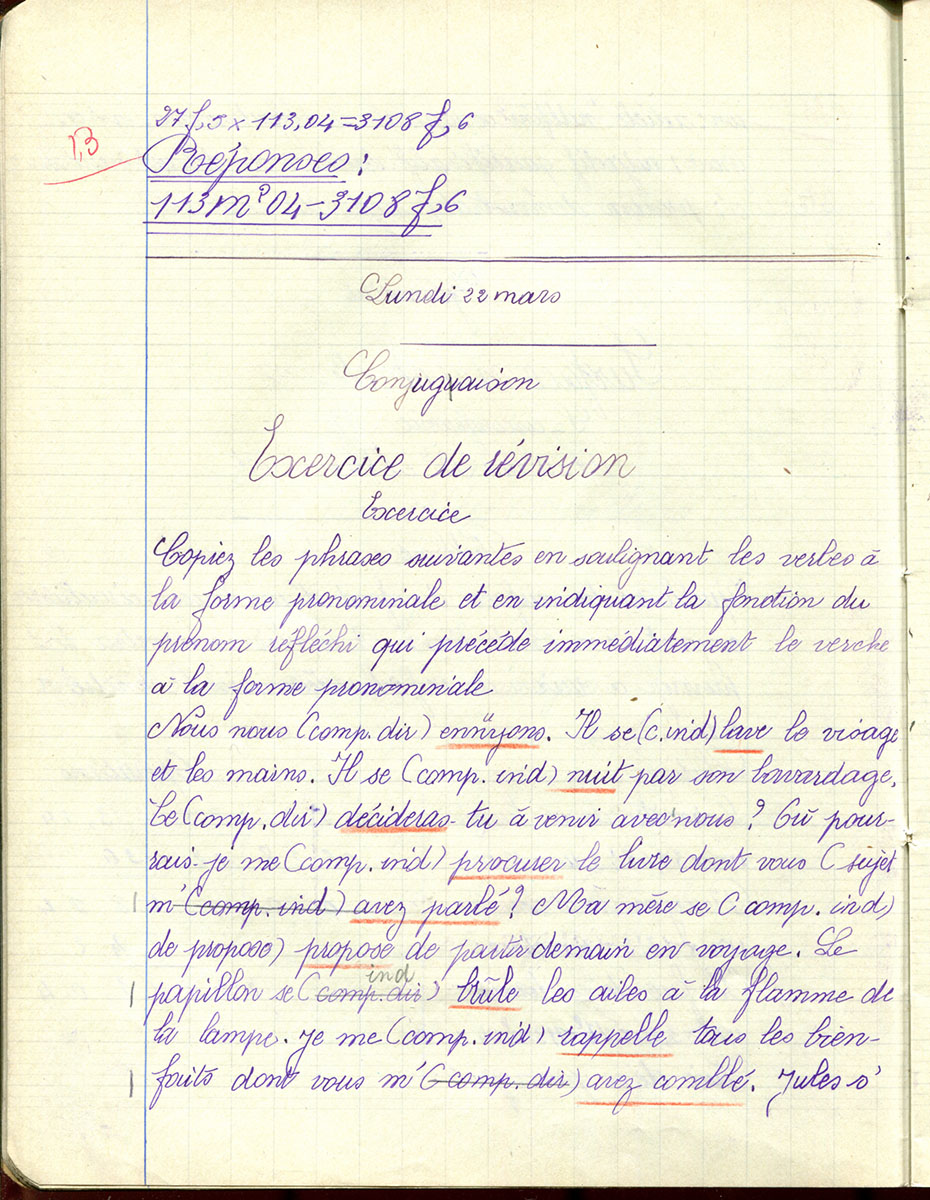 27f,5 x 113,04 = 3108f,6
13
Réponses :
113m²04 - 3108f,6
Lundi 22 mars
Conjuguaison
Exercice de révision
Exercice
Copiez les phrases suivantes en soulignant les verbes à
la forme pronominale et en indiquant la fonction du
prénom réfléchi qui précéde immédiatement le verche
à la forme pronominale
Nous nous (comp. dir) ennuyons. Il se (c. ind) lave le visage
et les mains. Il se (comp. ind) nuit par son bavardage.
Te (comp. dir) décideras-tu à venir avec nous ? Où pour-
rais-je me (comp. ind) procurer le livre dont vous ( sujet
m' (comp. ind) avez parlé ? Ma mère se ( comp. ind)
de propose) propose de partir demain en voyage. Le
ind
papillon se (comp. dir) brûle les ailes à la flamme de
la lampe. Je me (comp. ind) rappelle tous les bien-
faits dont vous m' (comp. dir) avez comblé. Jules s'